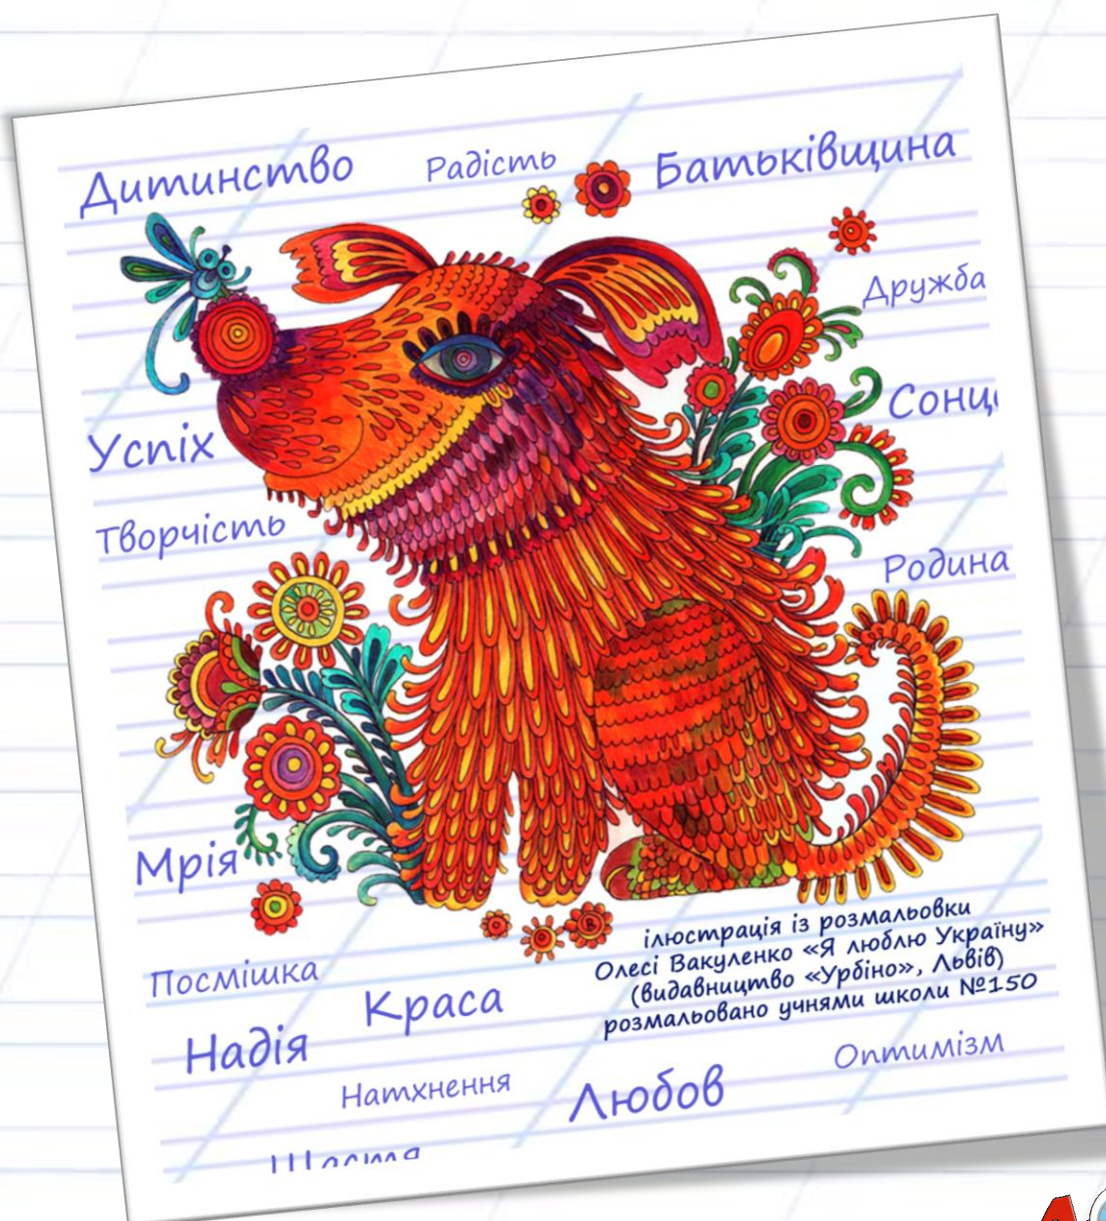 Дитинство
Радість
Батьківщина
Дружба
Сонц
Успіх
Творчість
Родина
Мрія
ілюстрація із розмальовки
Олесі Вакуленко «Я люблю Україну»
(видавництво «Урбіно», Львів)
розмальовано учнями школи №150
Посмішка
Краса
Надія
Оптимізм
Натхнення
Любов